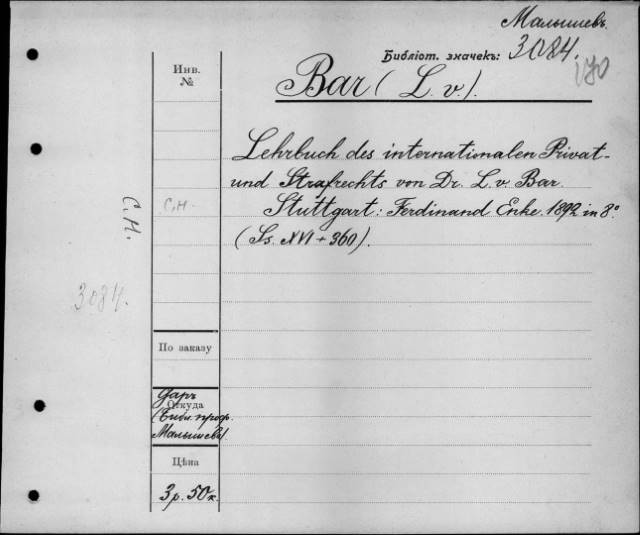 Малышевъ.
Библіот. значекъ: 3084.
170
Инв.
№
Bar (L. v.).
Lehrbuch des internationalen Privat-
und Strafrechts von Dr. L. v. Bar.
Stuttgart: Ferdinand Enke. 1892 in 8°
(Ss. XVI + 360).
С.Н.
С.Н.
3084.
По заказу
Даръ
Откуда
(Библ. проф.
Малышева).
Цѣна
3 р. 50 к.